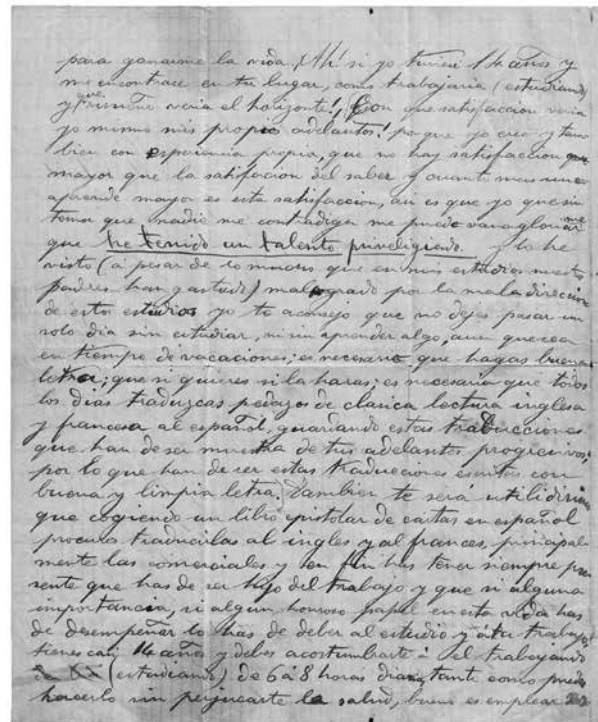 para ganarme la vida, ¡Ah! si yo tuviera 14 años y
me encontrace en tu lugar, como trabajaria (estudiando)
y que risueño veria el horizonte!, ¡Con que satisfaccion veria
yo mismo mis propios adelantos! porque yo creo y tam
bien con esperiencia propia, que no hay satisfaccion que
mayor que la satisfacion del saber y cuanto mas uno
aprende mayor es esta satisfaccion, asi es que yo que sin
temor que nadie me contradiga me puedo vanagloriar me
que he tenido un talento priveligiado. y lo he
visto (á pesar de lo mucho que en mis estudios nuestros
padres han gastado) malogrado por la mala direccion
de estos estudios yo te aconsejo que no dejes pasar un
solo dia sin estudiar, ni sin aprender algo, aun que sea
en tiempo de vacaciones; es necesario que hagas buena
letra; que si quieres si la haras; es necesaria que todos
los dias traduzcas pedazos de clasica lectura inglesa
y francesa al español, guardando estas traducciones
que han de ser muestra de tus adelantos progresivos;
por lo que han de ser estas traducciones escritas con
buena y limpia letra. Tambien te será utilidisimo
que cogiendo un libro epistolar de cartas en español
procures traducirlas al ingles y al frances, principal
mente las comerciales y en fin has tener siempre pre
sente que has de ser hijo del trabajo y que si alguna
importancia, si algun honroso papel en esta vida has
de desempeñar lo has de deber al estudio y á tu trabajo,
tienes casi 14 años y debes acostumbrarte á el trabajando
(estudiando) de 6 á 8 horas diarias, tanto como puedas
hacerlo sin perjucarte la salud, bueno es emplear